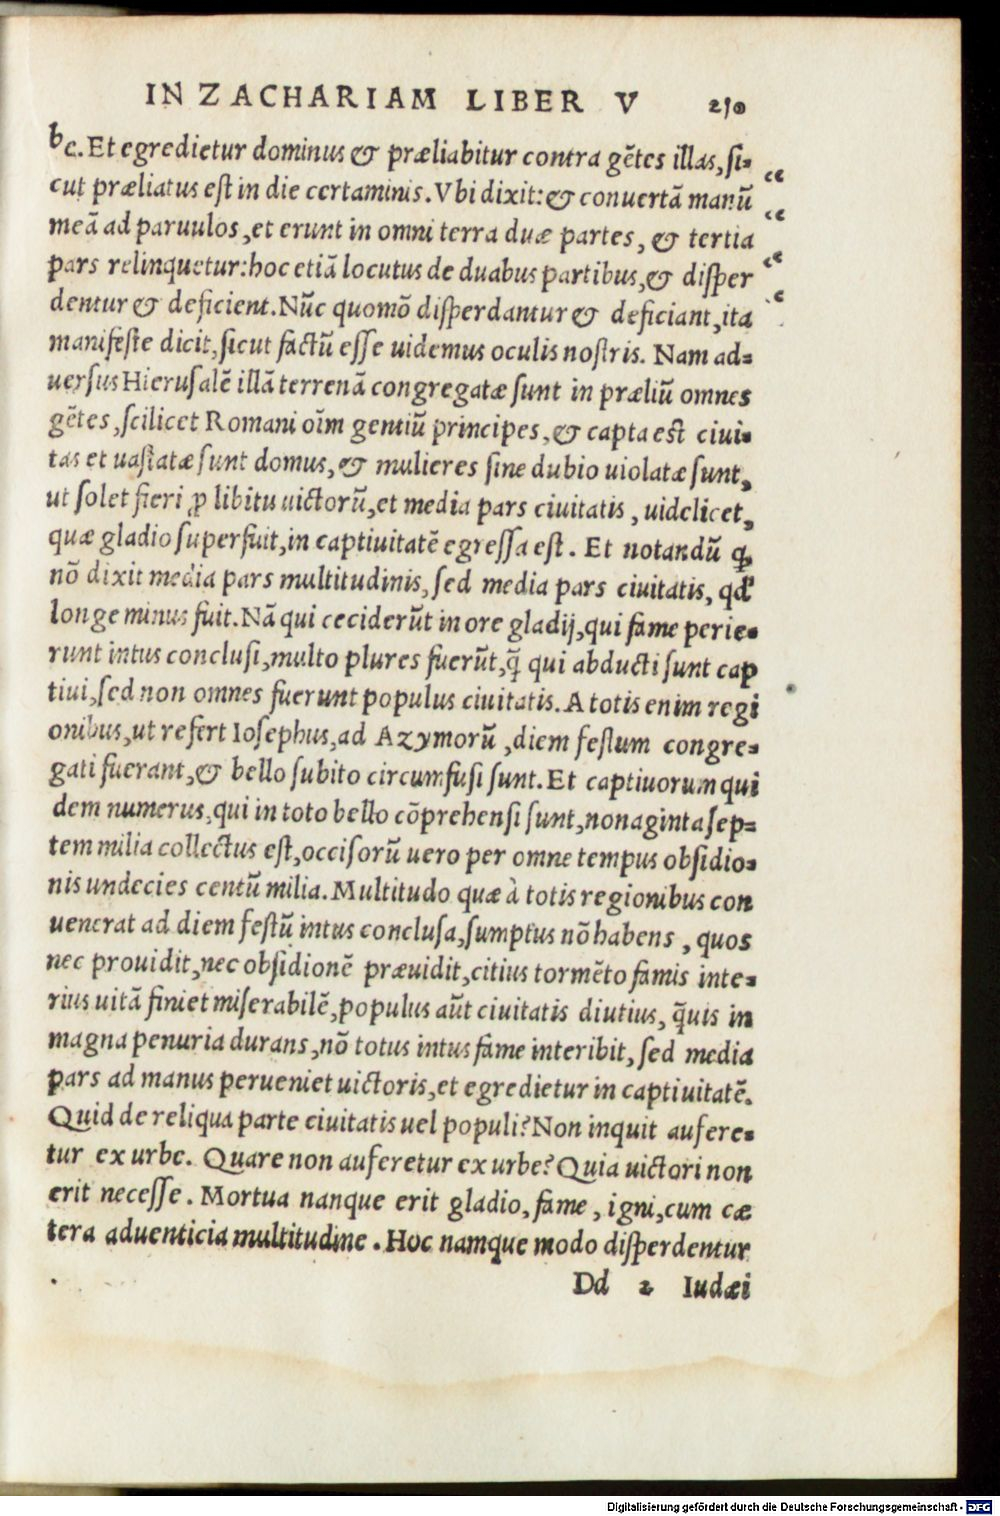 IN ZACHARIAM LIBER V 210
be. Et egredietur dominus & præliabitur contra gẽtes illas, si-
cut præliatus est in die certaminis. Vbi dixit: & conuertã manũ
meã ad paruulos, et erunt in omni terra duæ partes, & tertia
pars relinquetur: hoc etiã locutus de duabus partibus, & disper
dentur & deficient. Nũc quomõ disperdantur & deficiant, ita
manifeste dicit, sicut factũ esse uidemus oculis nostris. Nam ad-
uersus Hierusalẽ illã terrenã congregatæ sunt in præliũ omnes
gẽtes, scilicet Romani oĩm gentiũ principes, & capta est ciui-
tas et uastatæ sunt domus, & mulieres sine dubio uiolatæ sunt,
ut solet fieri ꝓ libitu uictorũ, et media pars ciuitatis, uidelicet,
quæ gladio superfuit, in captiuitatẽ egressa est. Et notandũ ꝙ
nõ dixit media pars multitudinis, sed media pars ciuitatis, qđ
longe minus fuit. Nã qui ceciderũt in ore gladij, qui fame perie-
runt intus conclusi, multo plures fuerũt, q̃ qui abducti sunt cap
tiui, sed non omnes fuerunt populus ciuitatis. A totis enim regi
onibus, ut refert Iosephus, ad Azymorũ, diem festum congre-
gati fuerant, & bello subito circumfusi sunt. Et captiuorum qui
dem numerus, qui in toto bello cõprehensi sunt, nonaginta sep-
tem milia collectus est, occisorũ uero per omne tempus obsidio-
nis undecies centũ milia. Multitudo quæ à totis regionibus con
uenerat ad diem festũ intus conclusa, sumptus nõ habens, quos
nec prouidit, nec obsidionẽ præuidit, citius tormẽto famis inte-
rius uitã finiet miserabilẽ, populus aũt ciuitatis diutius, q̃uis in
magna penuria durans, nõ totus intus fame interibit, sed media
pars ad manus perueniet uictoris, et egredietur in captiuitatẽ.
Quid de reliqua parte ciuitatis uel populi? Non inquit aufere-
tur ex urbe. Quare non auferetur ex urbe? Quia uictori non
erit necesse. Mortua nanque erit gladio, fame, igni, cum cæ
tera aduenticia multitudine. Hoc namque modo disperdentur
Dd 2 Iudæi
Digitalisierung gefördert durch die Deutsche Forschungsgemeinschaft - DFG